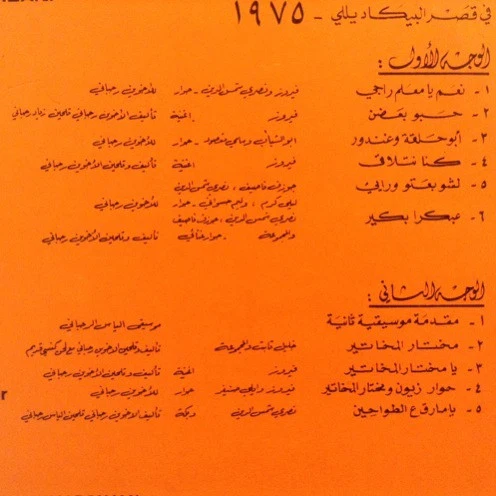 في قصر البيكاديللي - ١٩٧٥
الوجه الأول :
١ - نعم يا معلم راجي فيروز ونصري شمس الدين - حوار للأخوين رحباني
٢ - حبو بعضن فيروز اغنية تأليف الأخوين رحباني تلحين زياد رحباني
٣ - أبو حلقة وغندور حوار للأخوين رحباني
٤ - كنا نتلاقى فيروز اغنية تأليف وتلحين الأخوين رحباني
٥ - لشو بعتو ورايي جوزف ناصيف ، نصري شمس الدين
ليلى كرم ، وليم حسواني - حوار للأخوين رحباني
٦ - عبكرا بكير نصري شمس الدين ، جوزف ناصيف
والمجموعة - حوار غنائي تأليف وتلحين الأخوين رحباني
الوجه الثاني :
١ - مقدمة موسيقية ثانية موسيقى الياس الرحباني
٢ - مختار المخاتير والمجموعة
٣ - يا مختار المخاتير فيروز اغنية تأليف وتلحين الأخوين رحباني
٤ - حوار زيون ومختار المخاتير فيروز وايلي حوار للأخوين رحباني
٥ - يا مارق ع الطواحين نصري شمس الدين دبكة تأليف الأخوين رحباني تلحين الياس رحباني
r